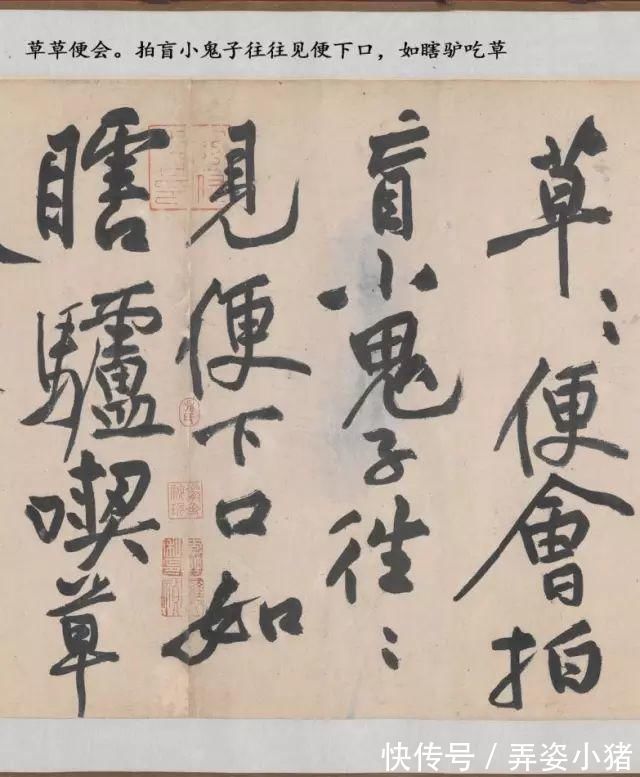 草草便会。拍盲小鬼子往往见便下口，如瞎驴吃草
草：便會拍
盲小鬼子徃：
見便下口如
瞎驢喫草
快传号／弄姿小猪